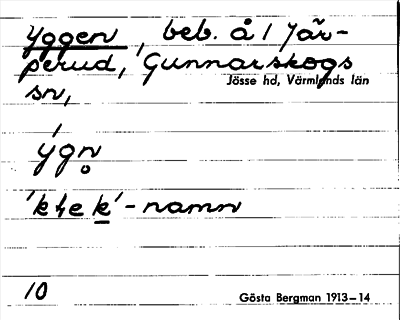 Yggen, beb. å 1 Jär-
perud, Gunnarskogs
Jösse hd, Värmlands län
sn,
ýgn̥
'k ke k'-namn
10
Gösta Bergman 1913–14